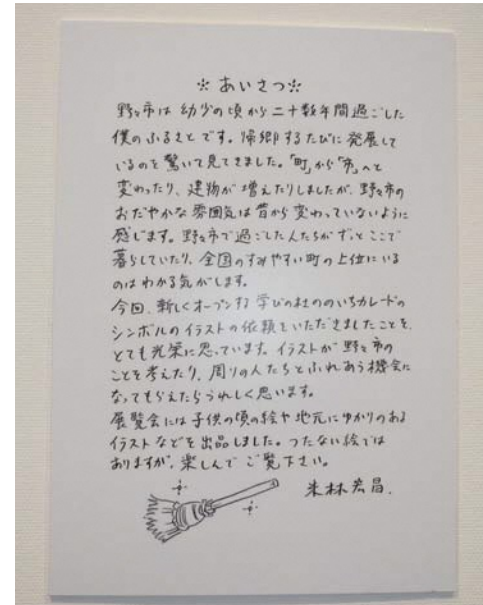 ※あいさつ※
野々市は幼少の頃から二十数年間過ごした
僕のふるさとです。帰郷するたびに発展して
いるのを驚いて見てきました。「町」から「市」へと
変わったり、建物が増えたりしましたが、野々市の
おだやかな雰囲気は昔から変わっていないように
感じます。野々市で過ごした人たちがずっとここで
暮らしていたり、全国のすみやすい町の上位にいる
のはわかる気がします。
今回、新しくオープンする学びの杜ののいちカレードの
シンボルのイラストの依頼をいただきましたことを、
とても光栄に思っています。イラストが野々市の
ことを考えたり、周りの人たちとふれあう機会に
なってもらえたらうれしく思います。
展覧会には子供の頃の絵や地元にゆかりのある
イラストなどを出品しました。つたない絵では
ありますが、楽しんでご覧下さい。
米林宏昌.